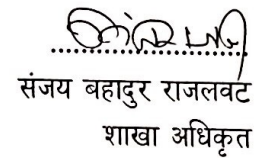 संजय बहादुर राजलवट
शाखा अधिकृत